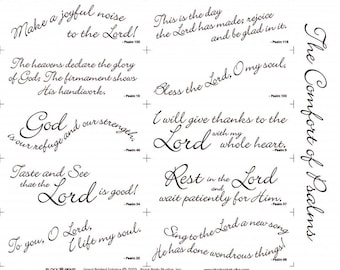 Make a joyful noise
to the Lord!
- Psalm 100
This is the day
the Lord has made; rejoice
and be glad in it.
- Psalm 118
The heavens declare the glory
of God; The firmament shows
His handiwork.
- Psalm 19
Bless the Lord, O my soul,
God
is our refuge and our strength,
I will give thanks to the
Lord with my
whole heart.
Taste and See
that the
Lord is good!
- Psalm 34
Rest in the Lord
and
wait patiently for Him.
To you, O Lord,
I lift my soul.
Sing to the Lord a new song
He has done wondrous things!
The Comfort of Psalms